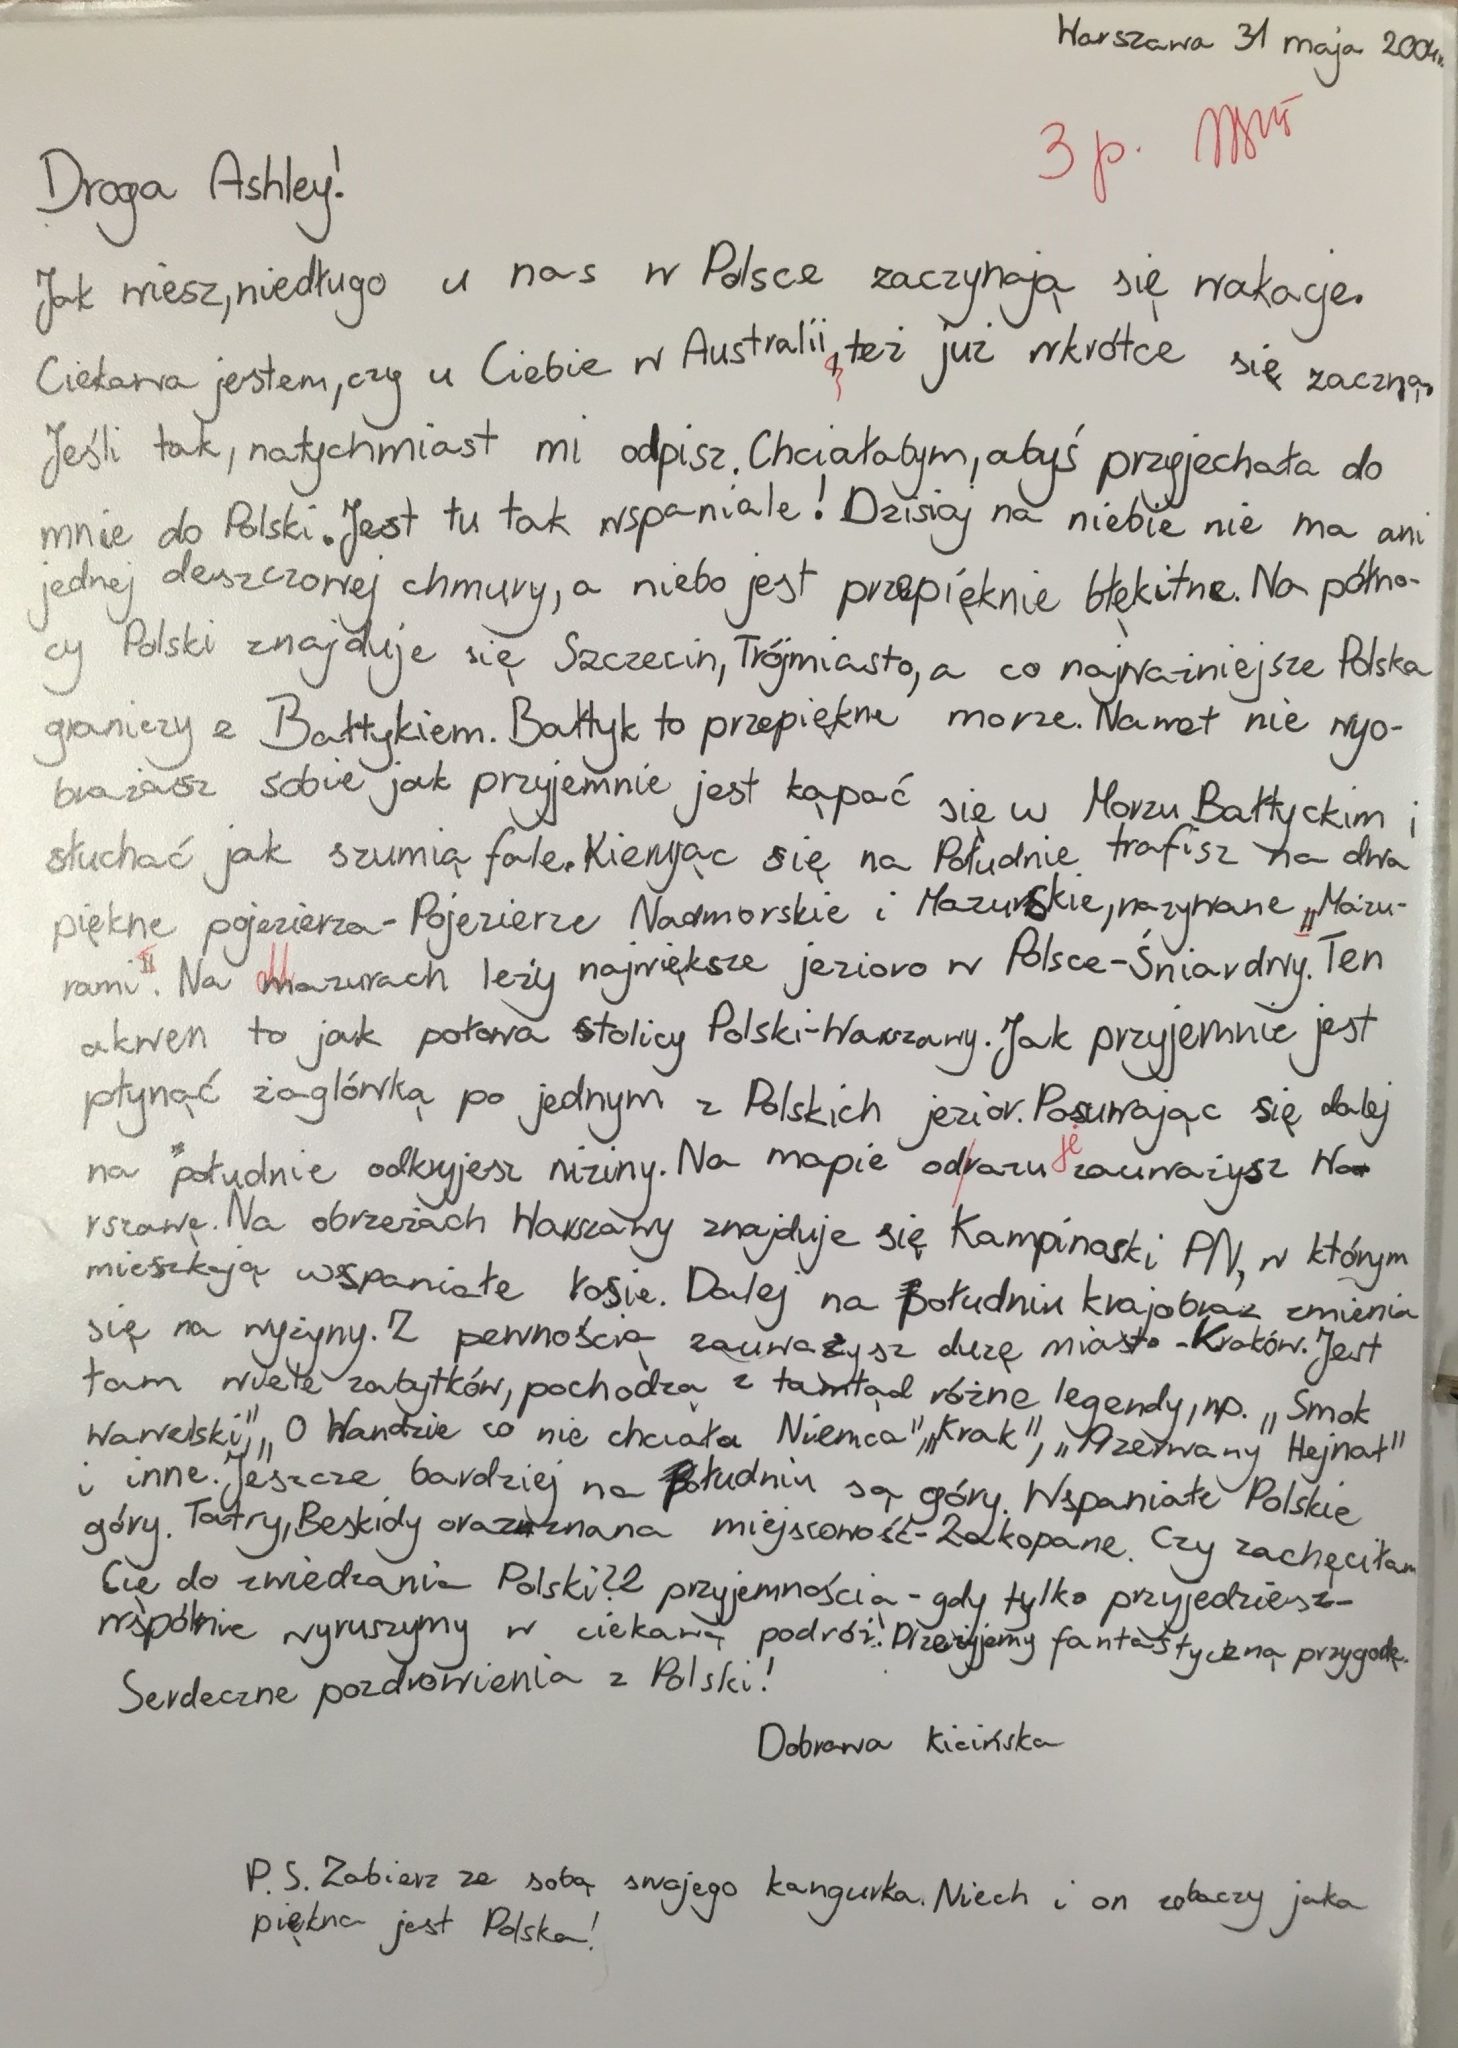 Warszawa 31 maja 2004r.
3 p.
Droga Ashley!
Jak wiesz, niedługo u nas w Polsce zaczynają się wakacje.
Ciekawa jestem, czy u Ciebie w Australii, też już wkrótce się zaczną.
Jeśli tak, natychmiast mi odpisz. Chciałabym, abyś przyjechała do
mnie do Polski. Jest tu tak wspaniale! Dzisiaj na niebie nie ma ani
jednej deszczowej chmury, a niebo jest przepięknie błękitne. Na półno-
cy Polski znajduje się Szczecin, Trójmiasto, a co najważniejsze Polska
graniczy z Bałtykiem. Bałtyk to przepiękne morze. Nawet nie wyo-
brażasz sobie jak przyjemnie jest kąpać się w Morzu Bałtyckim i
słuchać jak szumią fale. Kierując się na Południe trafisz na dwa
piękne pojezierza - Pojezierze Nadmorskie i Mazurskie, nazywane „Mazu-
rami". Na Mazurach leży największe jezioro w Polsce - Śniardwy. Ten
akwen to jak połowa stolicy Polski - Warszawy. Jak przyjemnie jest
płynąć żaglówką po jednym z Polskich jezior. Posuwając się dalej
na południe odkryjesz niziny. Na mapie od/razu je zauważysz Wa-
rszawę. Na obrzeżach Warszawy znajduje się Kampinoski PN, w którym
mieszkają wspaniałe łosie. Dalej na Południu krajobraz zmienia
się na wyżyny. Z pewnością zauważysz duże miasto - Kraków. Jest
tam wiele zabytków, pochodzą z tamtąd różne legendy, np. „Smok
Wawelski", „O Wandzie co nie chciała Niemca", „Krak", „Przerwany Hejnał"
i inne. Jeszcze bardziej na Południu są góry. Wspaniałe Polskie
góry. Tatry, Beskidy oraz znana miejscowość - Zakopane. Czy zachęciłam
Cię do zwiedzania Polski? Z przyjemnością - gdy tylko przyjedziesz -
wspólnie wyruszymy w ciekawą podróż. Przeżyjemy fantastyczną przygodę.
Serdeczne pozdrowienia z Polski!
Dobrawa Kicińska
P.S. Zabierz ze sobą swojego kangurka. Niech i on zobaczy jaka
piękna jest Polska!